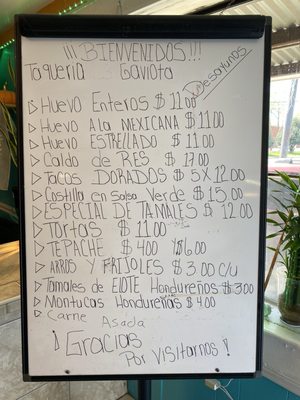 ¡¡¡BIENVENIDOS!!!
Taqueria Gaviota
Desayunos
HUEVO Enteros $ 11.00
HUEVO A la MEXICANA $ 11.00
HUEVO ESTRELLADO $ 11.00
Caldo de RES $ 17.00
TACOS DORADOS $ 5 X 12.00
Costilla en Salsa Verde $ 15.00
ESPECIAL DE TAMALES $ 12.00
TORTAS $ 11.00
TEPACHE $ 4.00 $6.00
ARROS Y FRIJOLES $ 3.00 C/U
Tamales de ELOTE Hondureños $3.00
Montucas Hondureñas $ 4.00
Carne Asada
¡Gracias
Por Visitarnos!